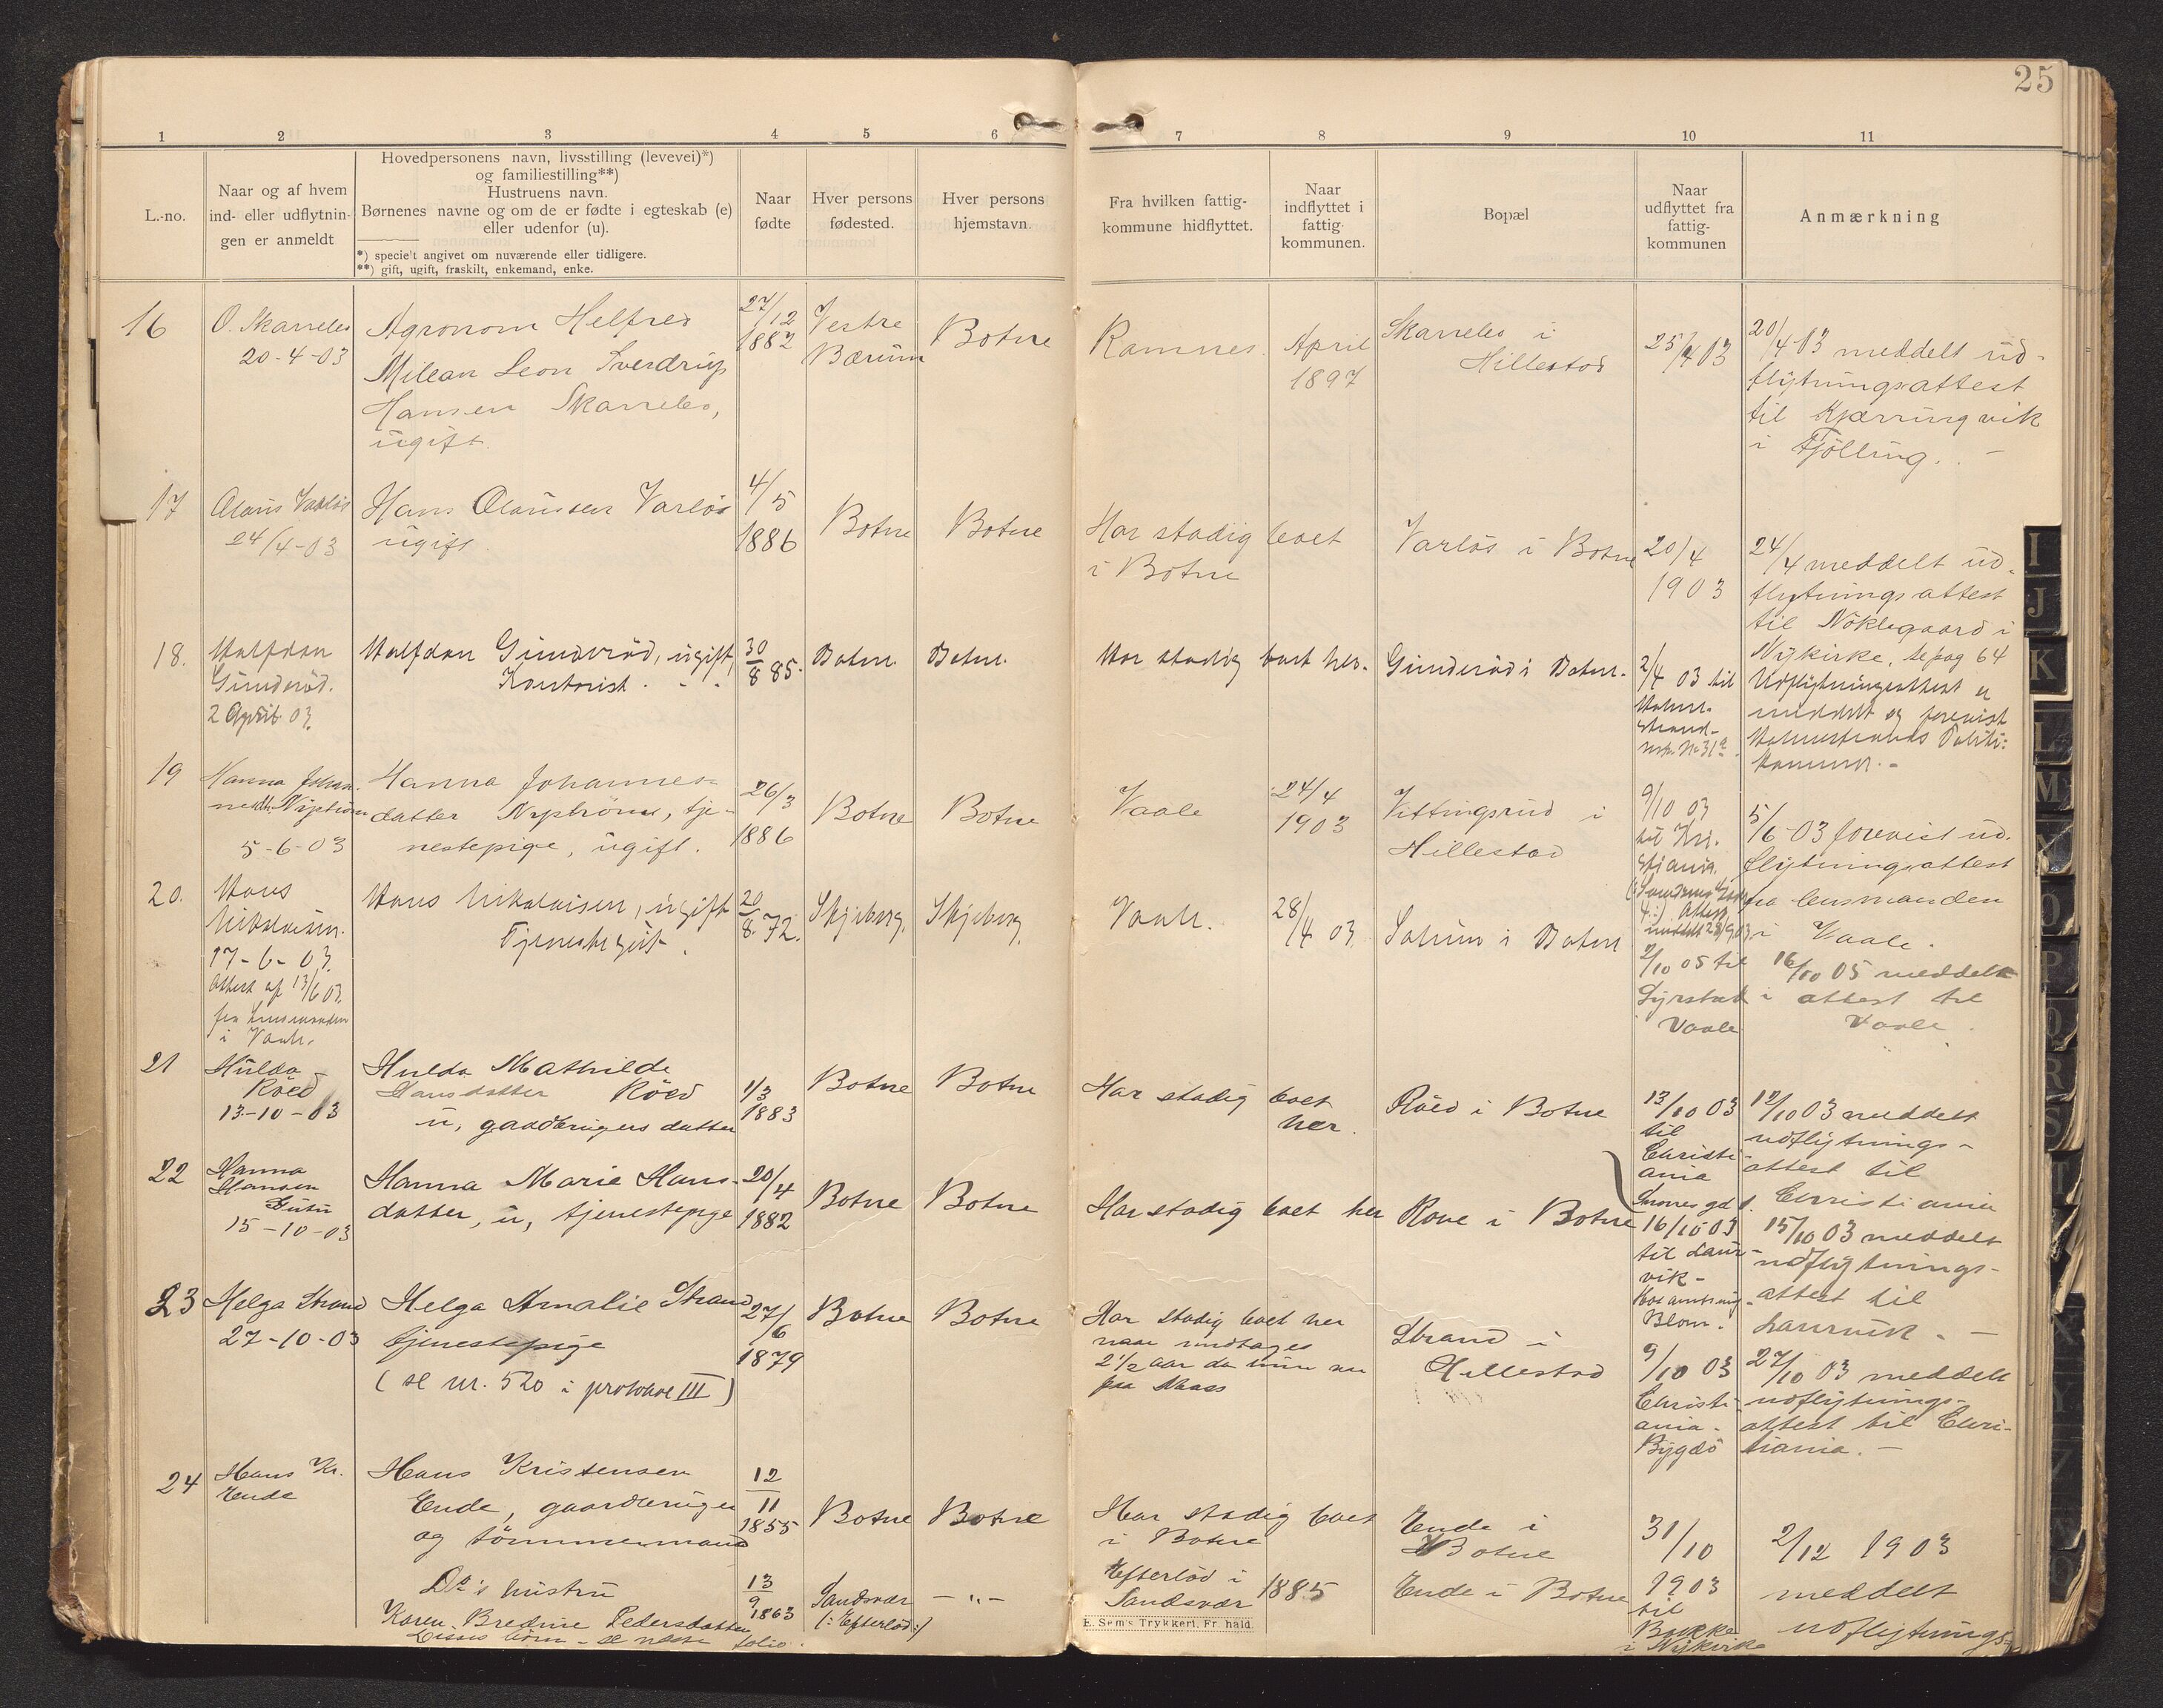 25
1 2 3 4 5 6 7 8 9 10 11
L.-no.
Naar og af hvem
ind- eller udflytnin-
gen er anmeldt
Hovedpersonens navn, livsstilling (levevei)*)
og familiestilling**)
Hustruens navn.
Børnenes navne og om de er fødte i egteskab (e)
eller udenfor (u).
*) specielt angivet om nuværende eller tidligere.
**) gift, ugift, fraskilt, enkemand, enke.
Naar
fødte
Hver persons
fødested.
Hver persons
hjemstavn.
Fra hvilken fattig-
kommune hidflyttet.
Naar
indflyttet i
fattig-
kommunen.
Bopæl
Naar
udflyttet fra
fattig-
kommunen
Anmærkning
16
O. Skarrebo
20-4-03
Agronom Helfred
Milean Leon Sverdrup
Hansen Skarrebo,
ugift.
27/12
1882
Vestre
Bærum
Botne
Ramnes.
April
1897
Skarrebo i
Hillestad
25/4 03
20/4 03 meddelt ud-
flytningsattest
til Kjærringvik
i Tjølling. -
17
Olaus Varløs
24/4-03
Hans Olaussen Varløs
ugift
4/5
1886
Botne
Botne
Har stadig boet
i Botne
Varløs i Botne
20/4
1903
24/4 meddelt ud-
flytningsattest
til Nøklegaard i
Nykirke, se pag 64
18.
Halfdan
Gunderød.
2 April 03.
Halfdan Gunderød, ugift,
Kontorist.
30/8 85.
Botne.
Botne.
Har stadig boet her.
Gunderød i Botne.
2/4 03 til
Holme-
strand
Udflytningsattest er
meddelt og forevist
Holmestrands Politi-
kammer. -
19
Hanna Johan-
nesdt. Nyström
5-6-03
Hanna Johannes-
datter Nyström, tje-
nestepige, ugift.
26/3
1886
Botne
Botne
Vaale
24/4
1903
Vittingsrud i
Hillestad
9/10 03
til Kri-
stiania.
5/6-03 forevist ud-
flytningsattest
fra lensmanden
i Vaale.
20.
Hans
Nikolaisen.
17-6-03.
Attest af 13/6 03.
fra Lensmanden
i Vaale.
Hans Nikolaisen, ugift
Tjenestegut.
20/8. 72.
Skjeberg.
Skjeberg.
Vaale.
28/4 03.
Solum i Botne
2/10 05 til
Gyrstad i
Vaale
16/10 05 meddelt
attest til
Vaale.
21
Hulda
Röed
13-10-03
Hulda Mathilde
Hansdatter Röed
u, gaardbrugers datter
1/3
1883
Botne
Botne
Har stadig boet
her.
Röed i Botne
13/10 03
til
Christi-
ania
12/10 03 meddelt
udflytnings-
attest til
Christiania
22
Hanna
Hansen
15-10-03
Hanna Marie Hans-
datter, u, tjenestepige
20/4
1882
Botne
Botne
Har stadig boet her
Rove i Botne
16/10 03
til Laur-
vik -
Blom.
15/10 03 meddelt
udflytnings-
attest til
Laurvik. -
23
Helga Strand
27-10-03
Helga Amalie Strand
tjenestepige
(se nr. 520 i protokol III)
27/6
1879
Botne
Botne
Har stadig boet her
naar undtages
2 1/2 aar da hun var
paa Maass
Strand i
Hillestad
9/10 03
Christi-
ania -
Bygdö
27/10 03 meddelt
udflytnings-
attest til Chri-
stiania. -
24
Hans Kr.
Ende
Hans Kristensen
Ende, gaardbruger
og tömmermand
12/11
1855
Botne
Botne
Har stadig boet
i Botne
Ende i
Botne
31/10
1903
til
Bukke
i Nykirke
2/12 1903
meddelt
udflytnings-
Do's hustru
Karen Bredine Pedersdatter
Disses börn - se næste folio.
13/9
1863
Sandsvær
(: Efterlöd :)
-"-
Efterlöd i
Sandsvær
1885
Ende i Botne
E. Sem's Trykkeri, Fr.hald.
I
J
K
L
M
N
O
P
Q
R
S
T
X
Y
Z
Ø